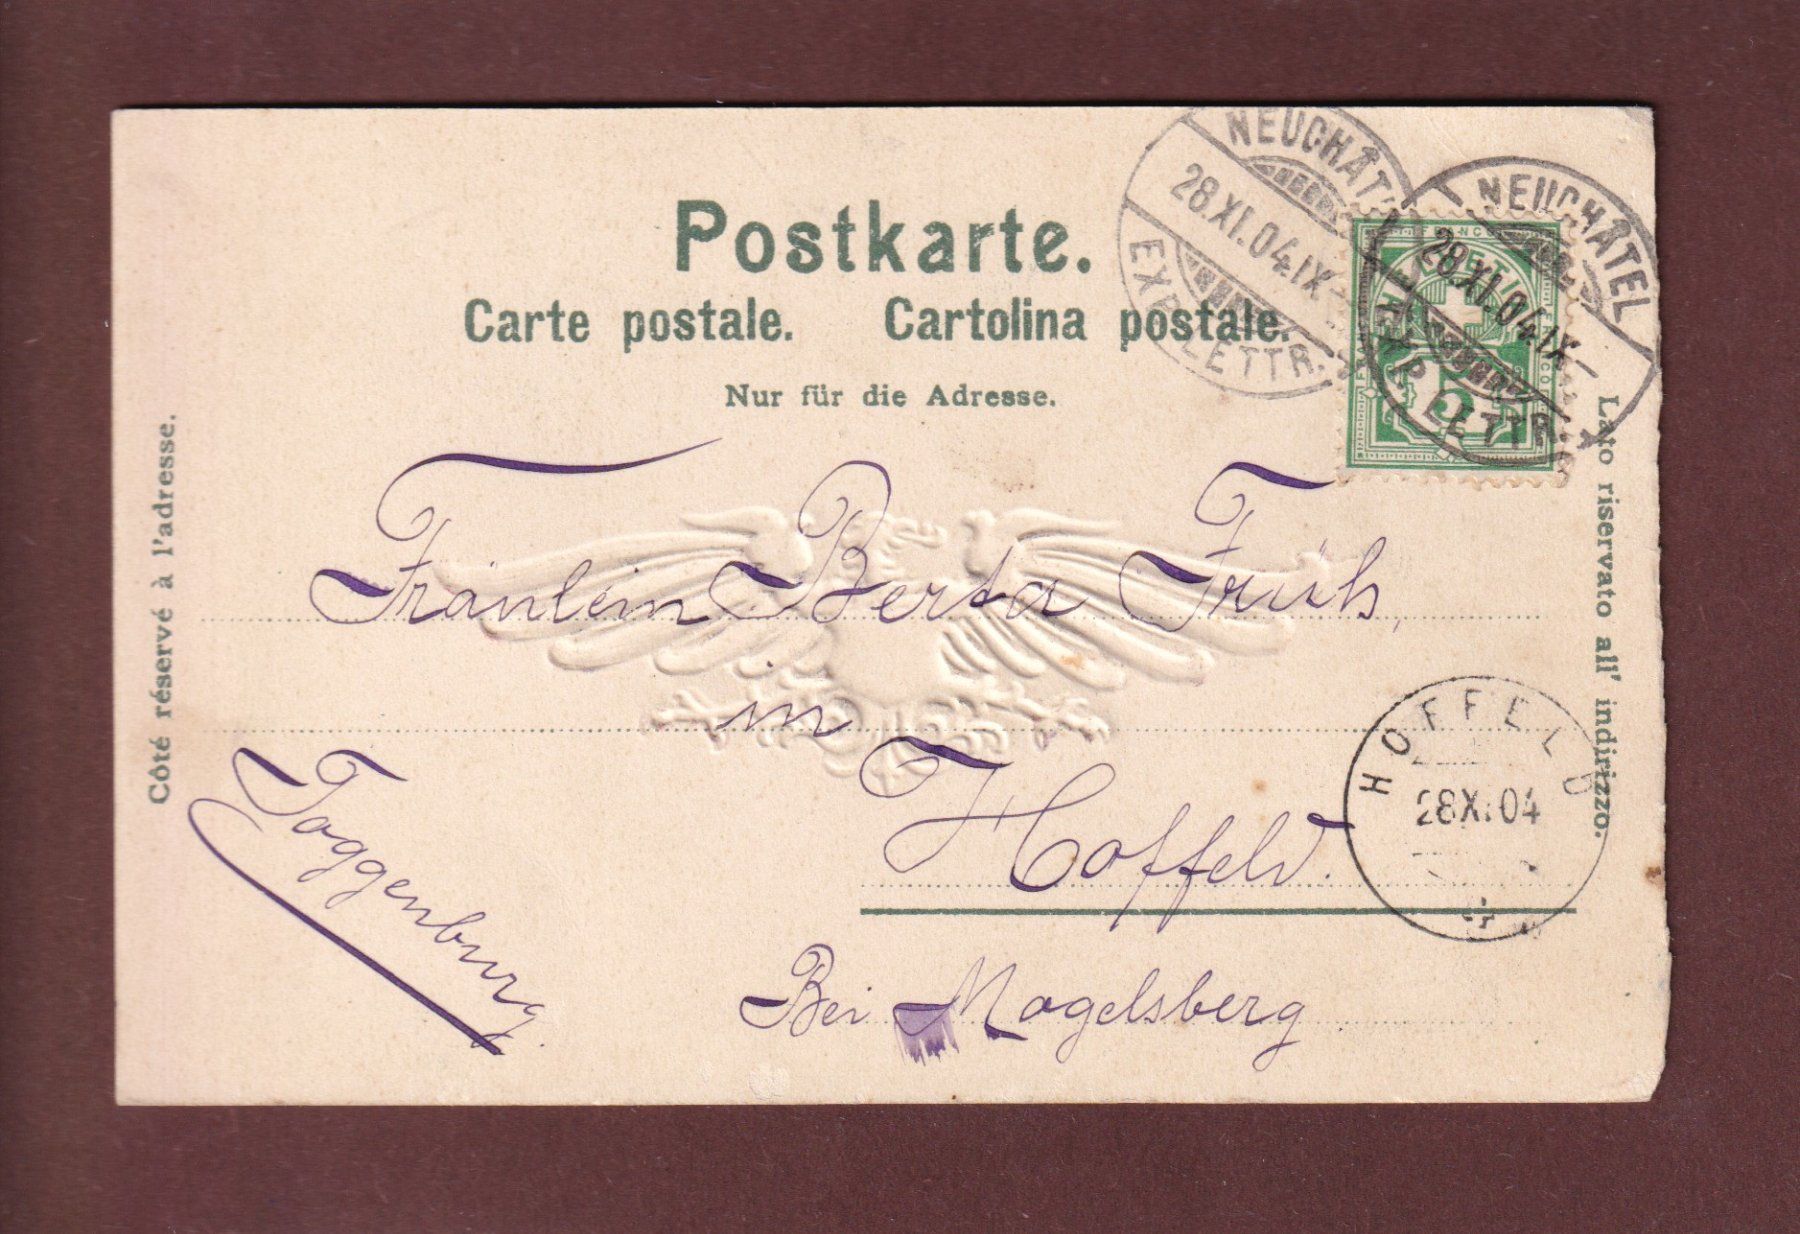 Postkarte.
Carte postale. Cartolina postale.
Nur für die Adresse.
Côté réservé à l'adresse.
Lato riservato all' indirizzo.
NEUCHÂTEL
28.XI.04.IX-
EXP. LETTR.
NEUCHÂTEL
28.XI.04.IX-
EXP. LETTR.
FRANCO
HELVETIA
5
Fräulein Berta Früh,
in
Hoffeld.
Bei Mogelsberg
Toggenburg.
HOFFELD
28.XI.04